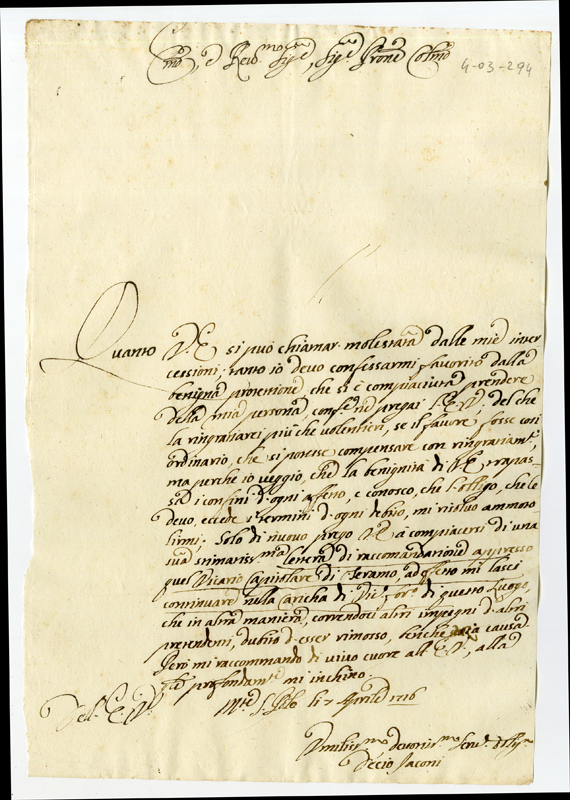 Em̃o, e Rev.mo Sig.re, Sig.re Prone Colmo
4-03-294
Quanto V.E. si può chiamar molestata dalle mie inter
cessioni, tanto io devo confessarmi favorito dalla
benigna protettione che si è compiaciuta prendere
della mia persona, conforme pregai l'E.V., del che
la ringratiarei più che volentieri, se il favore fosse così
ordinario, che si potesse compensare con ringratiam.ti,
ma perche io veggio, che la benignità di V.E. trapas-
sa i confini d'ogni affetto, e conosco, che l'obligo, che le
devo, eccede i termini d'ogni debito, mi risolvo ammoto
lirmi; Solo di nuovo prego V.E. à compiacersi di una
sua stimatiss.ma lettera di raccomandatione appresso
quel Vicario Capitolare di Teramo, ad effetto mi lasci
continuare nella caricha di Vic.o for.o di questo luogo,
che in altra maniera, correndoci altri impegni d'altri
pretendenti, dubito d'esser rimosso, benche senza causa.
Però mi raccommando di vivo cuore all'E.V., alla
q.le profondam.te mi inchino
Mte S. Polo li 7 Aprile 1716
Dell'E.V.
Umiliss.mo devotiss.mo Serv.e obblig.mo
Decio Jaconi